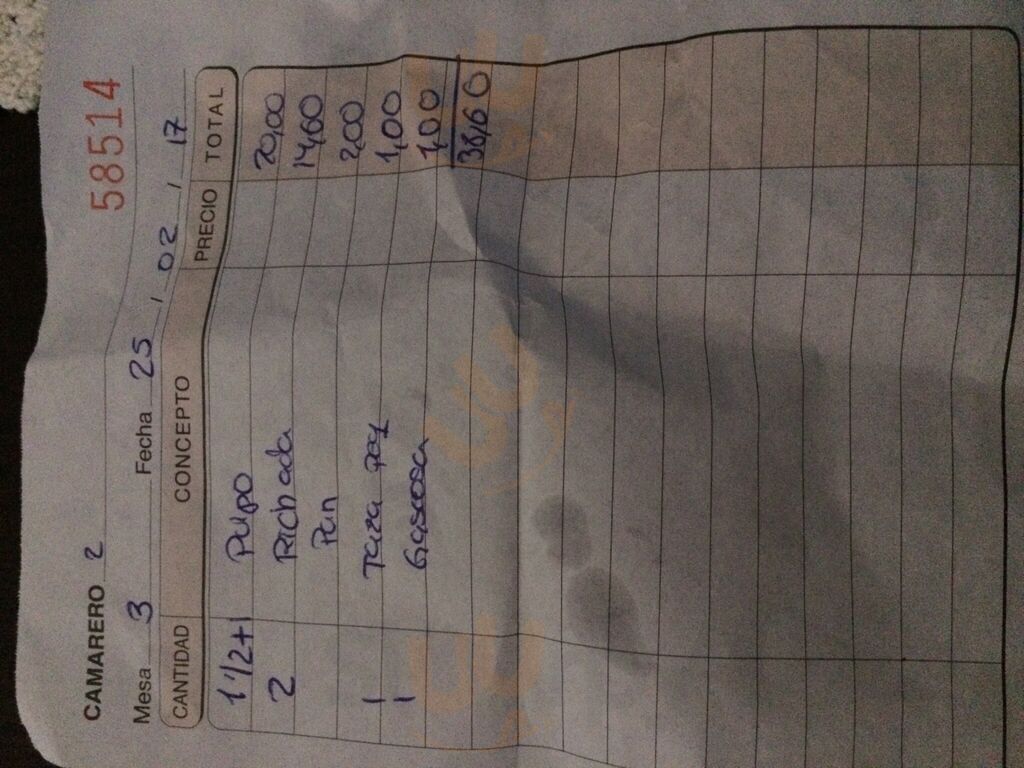 58514
CAMARERO 2
Mesa 3 Fecha 25 / 02 / 17
CANTIDAD CONCEPTO PRECIO TOTAL
1 1/2+1 Pulpo 20,00
2 Richada 14,60
Pan 2,00
1 Taza 1,00
1 Gaseosa 1,00
38,60